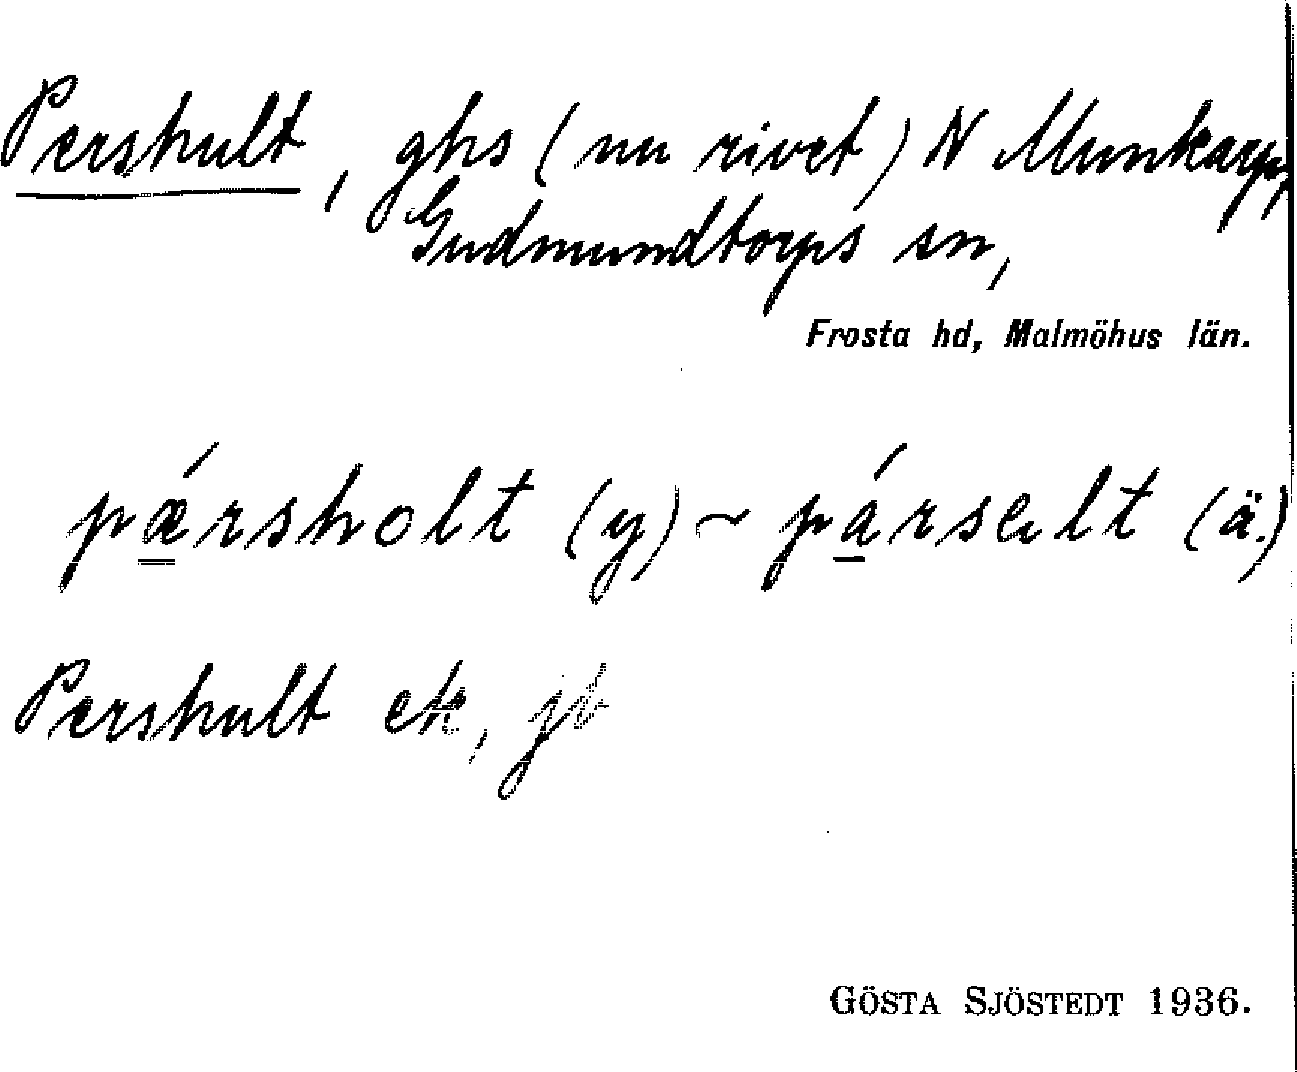 Pershult, ghs (nu rivet) N Munkarp,
Gudmundtorps sn,
Frosta hd, Malmöhus län.
pǽrsholt (y) ~ pársalt (ä.)
Pershult ek, jb
GÖSTA SJÖSTEDT 1936.